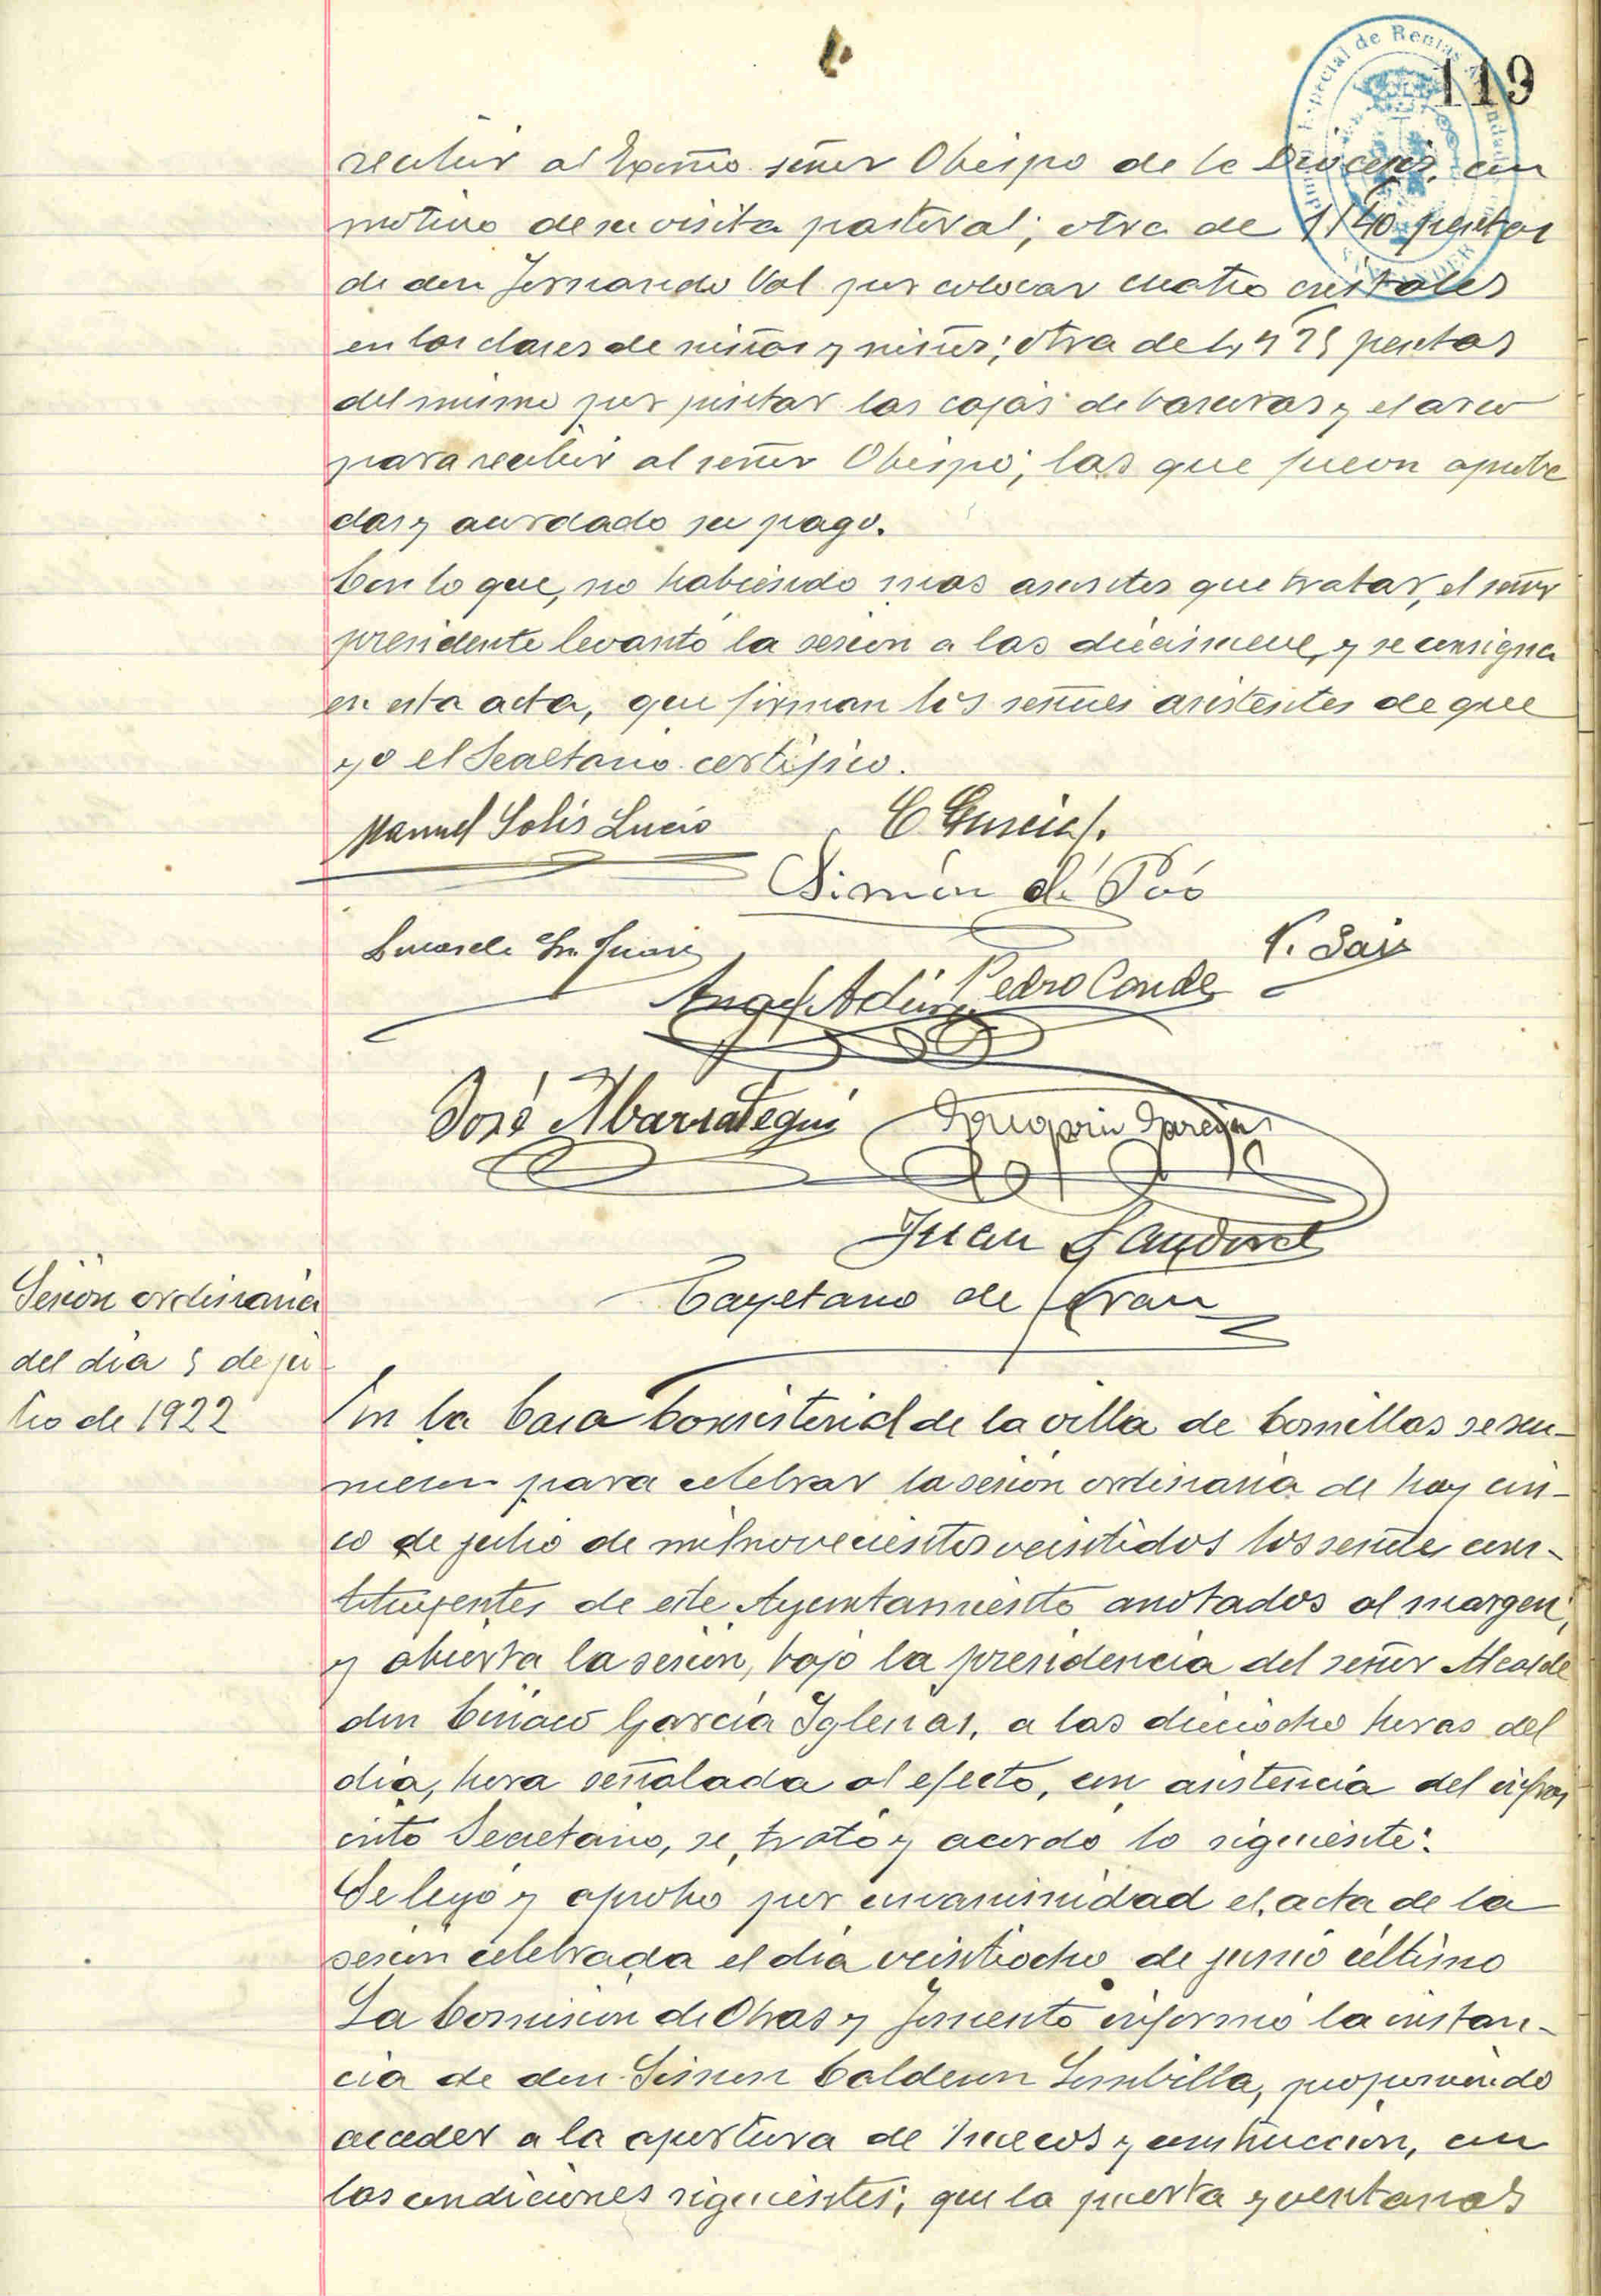 119
recibir al Excmo señor Obispo de la Diócesis, con
motivo de su visita pastoral; otra de 11'40 pesetas
de don Fernando Val por colocar cuatro cristales
en las clases de niños y niñas; otra de pesetas
del mismo por pintar las cajas de basuras y el arco
para recibir al señor Obispo; las que fueron aproba
das y acordado su pago.
Con lo que, no habiendo mas asuntos que tratar, el señor
presidente levantó la sesion a las diecinueve, y se consigna
en esta acta, que firman los señores asistentes de que
yo el Secretario certifico.
Manuel Solís Lucio C García
Simón de Poó
V. Saiz
Angel Pedro Conde
José Abarrategui Joaquin
Juan Sandoval
Cayetano de Teran
Sesión ordinaria
del día 5 de ju
lio de 1922
En la Casa Consistorial de la villa de Comillas se reu-
nieron para celebrar la sesion ordinaria de hoy cin-
co de julio de mil novecientos veintidos los señores cons-
tituyentes de este Ayuntamiento anotados al margen,
y abierta la sesion, bajo la presidencia del señor Alcalde
don Ciriaco García Iglesias, a las dieciocho horas del
día, hora señalada al efecto, con asistencia del infras
crito Secretario, se trató y acordó lo siguiente:
Se leyó y aprobó por unanimidad el acta de la
sesion celebrada el día veintiocho de junio último
La Comision de Obras y Fomento informó la instan-
cia de don Simon Calderon Sombilla, proponiendo
acceder a la apertura de huecos y construccion, con
las condiciones siguientes; que la puerta y ventanas